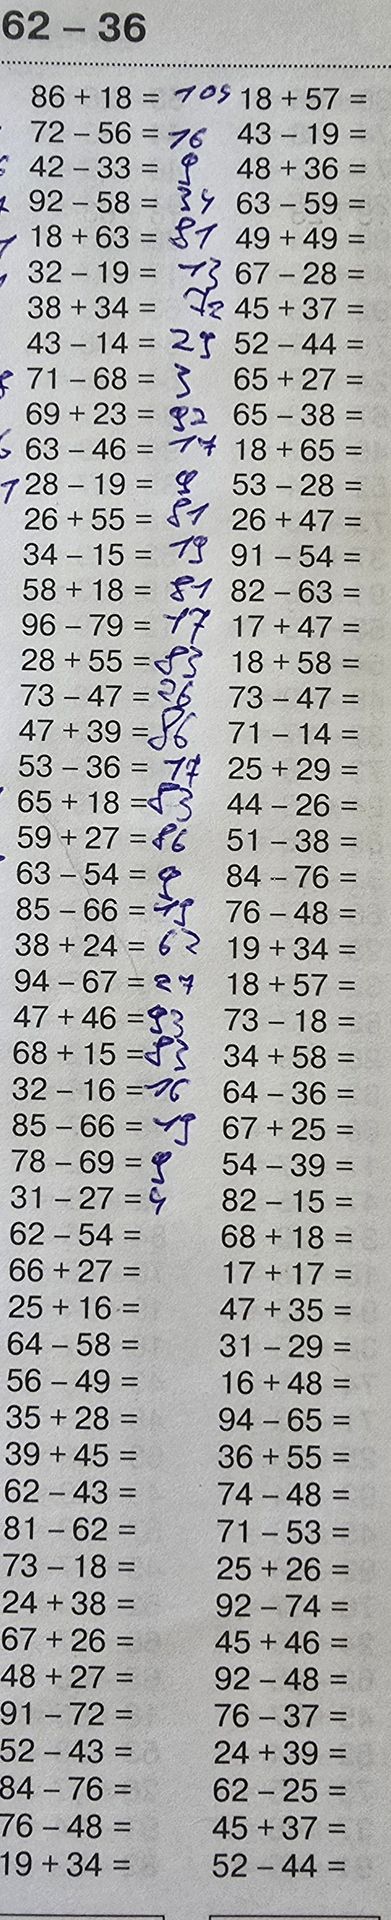 62 – 36
86 + 18 = 105
72 – 56 = 16
42 – 33 = 9
92 – 58 = 34
18 + 63 = 81
32 – 19 = 13
38 + 34 = 72
43 – 14 = 29
71 – 68 = 3
69 + 23 = 92
63 – 46 = 17
28 – 19 = 9
26 + 55 = 81
34 – 15 = 19
58 + 18 = 81
96 – 79 = 17
28 + 55 = 83
73 – 47 = 26
47 + 39 = 86
53 – 36 = 17
65 + 18 = 83
59 + 27 = 86
63 – 54 = 9
85 – 66 = 19
38 + 24 = 62
94 – 67 = 27
47 + 46 = 93
68 + 15 = 83
32 – 16 = 16
85 – 66 = 19
78 – 69 = 9
31 – 27 = 4
62 – 54 =
66 + 27 =
25 + 16 =
64 – 58 =
56 – 49 =
35 + 28 =
39 + 45 =
62 – 43 =
81 – 62 =
73 – 18 =
24 + 38 =
67 + 26 =
48 + 27 =
91 – 72 =
52 – 43 =
84 – 76 =
76 – 48 =
19 + 34 =
18 + 57 =
43 – 19 =
48 + 36 =
63 – 59 =
49 + 49 =
67 – 28 =
45 + 37 =
52 – 44 =
65 + 27 =
65 – 38 =
18 + 65 =
53 – 28 =
26 + 47 =
91 – 54 =
82 – 63 =
17 + 47 =
18 + 58 =
73 – 47 =
71 – 14 =
25 + 29 =
44 – 26 =
51 – 38 =
84 – 76 =
76 – 48 =
19 + 34 =
18 + 57 =
73 – 18 =
34 + 58 =
64 – 36 =
67 + 25 =
54 – 39 =
82 – 15 =
68 + 18 =
17 + 17 =
47 + 35 =
31 – 29 =
16 + 48 =
94 – 65 =
36 + 55 =
74 – 48 =
71 – 53 =
25 + 26 =
92 – 74 =
45 + 46 =
92 – 48 =
76 – 37 =
24 + 39 =
62 – 25 =
45 + 37 =
52 – 44 =